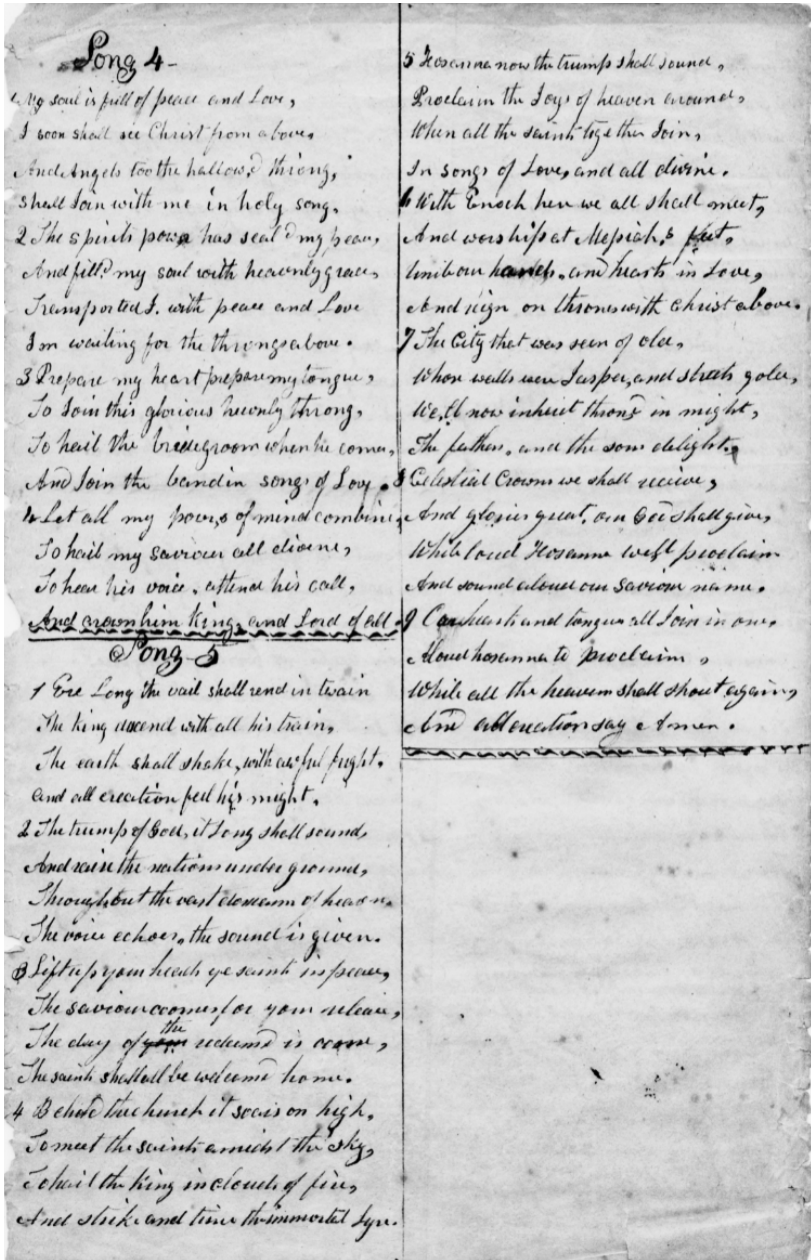 Song 4-
1 My soul is full of peace and Love,
I soon shall see Christ from above,
And Angels too the hallow,d throng,
Shall Join with me in holy song,
2 The spirits power has seal'd my peace,
And fill,d my soul with heavenly grace,
Transported I. with peace and Love
Im waiting for the throngs above.
3 Prepare my heart prepare my tongue,
To Join this glorious hevnly throng,
To hail the bridegroom when he comes,
And Join the band in songs of Love.
4 Let all my powr,s of mind combine,
To hail my saviour all divine,
To hear his voice, attend his call,
And crown him King, and Lord of all.
Song 5
1 Ere Long the vail shall rend in twain
The king decend with all his train,
The earth shall shake, with awful fright,
and all creation feel his might,
2 The trump of God, it Long shall sound,
And raise the nations under ground,
Throughout the vast domain of heaven.
The voice echoes, the sound is given.
3 Lift up your heads ye saints in peace,
The saviour comes for your release,
The day of the redeem'd is come,
The saints shall all be welcom'd home.
4 Behold the church it soars on high,
To meet the saints amidst the sky,
To hail the King in clouds of fire,
And strike and tune th immortal Lyre.
5 Hosanna now the trump shall sound,
Proclaim the Joys of heaven around,
When all the saints together Join,
In songs of Love, and all divine.
6 With Enoch here we all shall meet,
And worship at Messiah,s feet,
Unite our hands, and hearts in Love,
And reign on thrones with Christ above.
7 The City that was seen of old,
Whose walls were Jasper, and streets gold,
We,ll now inherit thron'd in might,
The father, and the sons delight.
8 Celestial Crowns we shall receive,
And glories great, our God shall give,
While loud Hosannas we,ll proclaim
And sound aloud our Saviours name.
9 Our hearts and tongues all Join in one,
Aloud hosanna to proclaim,
While all the heavens shall shout again,
And all creation say Amen.